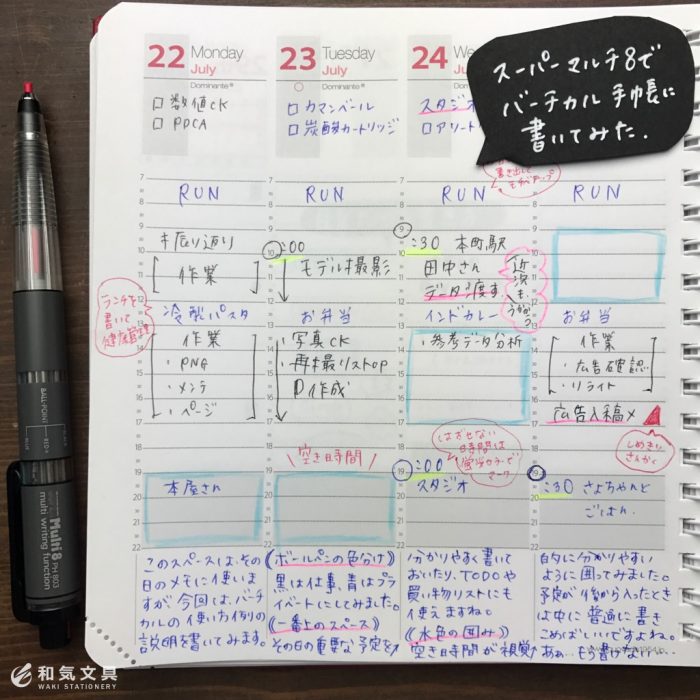 スーパーマルチ8で
バーチカル手帳に
書いてみた.
22 Monday
July
Dominante®
数値CK
PDCA
7
RUN
振り返り
作業
ランチを
書いて
健康管理
冷製パスタ
作業
・PNG
・メンテ
・ページ
本屋さん
このスペースは、その
日のメモに使いま
すが、今回は、バーチ
カルの使い方例の
説明を書いてみます。
23 Tuesday
July
Dominante®
カマンベール
炭酸カートリッジ
RUN
10 :00
モデル撮影
お弁当
・写真CK
・再撮リストUP
作成
空き時間
《ボールペンの色分け》
黒は仕事、青はプラ
イベートにしてみました。
《一番上のスペース》
その日の重要な予定を
24
July
Dominante®
スタジオ
書き出して
モチベアップ
RUN
9 :30 本町駅
田中さん
データ渡す.
近況
も
うかがう
インドカレー
・参考データ分析
はずせない
時間は
蛍光カラーで
マーク
19 :00
スタジオ
分かりやすく書いて
おいたり、TODOや
買い物リストにも
使えますね。
《水色の囲み》
空き時間が視覚
RUN
お弁当
作業
・広告確認
・リライト
広告入稿〆
しめきり
さんかく
19 :30 さよちゃんと
ごはん.
的に分かりやすい
ように囲ってみました。
予定が後から入ったとき
は中に普通に書き
こめばいいですよね。
あぁ…もう書けない…
BALL-POINT
BLUE
RED
Multi8 PH 803
multi writing function
和気文具
WAKI STATIONERY